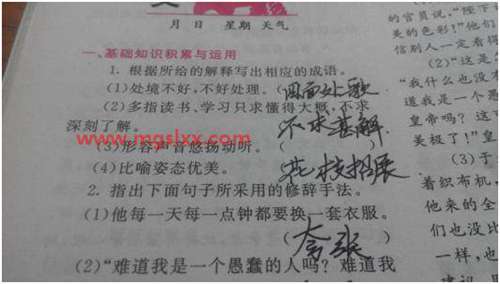 月 日 星期 天气
一、基础知识积累与运用
1. 根据所给的解释写出相应的成语。
(1)处境不好,不好处理。(
(2)多指读书,学习只求懂得大概,不求
深刻了解。 ( 不求甚解
www.mgslxx.com
(3)形容声音悠扬动听。(
(4)比喻姿态优美。 ( 花枝招展
2. 指出下面句子所采用的修辞手法。
(1)他每一天每一点钟都要换一套衣服。
( 夸张 )
(2)“难道我是一个愚蠢的人吗?难道我
的官员说,“陛下
美的色彩!”他们
信别人一定看得
(2)“这是
“我什么也没
道我是一个愚
皇帝吗?这
美极了!”皇
(3)于
着织布机,
他来的全
们也没比
一样,也